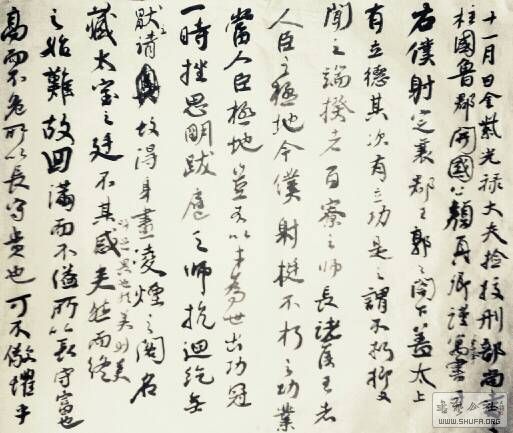 十一月日金紫光禄大夫捡挍刑部尚書上
柱國魯郡開國公顏真卿謹寓書于
右僕射定襄郡王郭公閤下蓋太上
有立德其次有立功是之謂不朽抑又
聞之端揆者百寮之師長諸侯王者
人臣之極地今僕射挺不朽之功業
當人臣極地豈不以才為世出功冠
一時挫思明跋扈之師抗迴紇無
厭請故得身畫凌煙之閣名
藏太室之廷不其盛矣然而終
美則美
之始難故曰滿而不溢所以長守富也
高而不危所以長守貴也可不儆懼乎
WWW.SHUFA.ORG